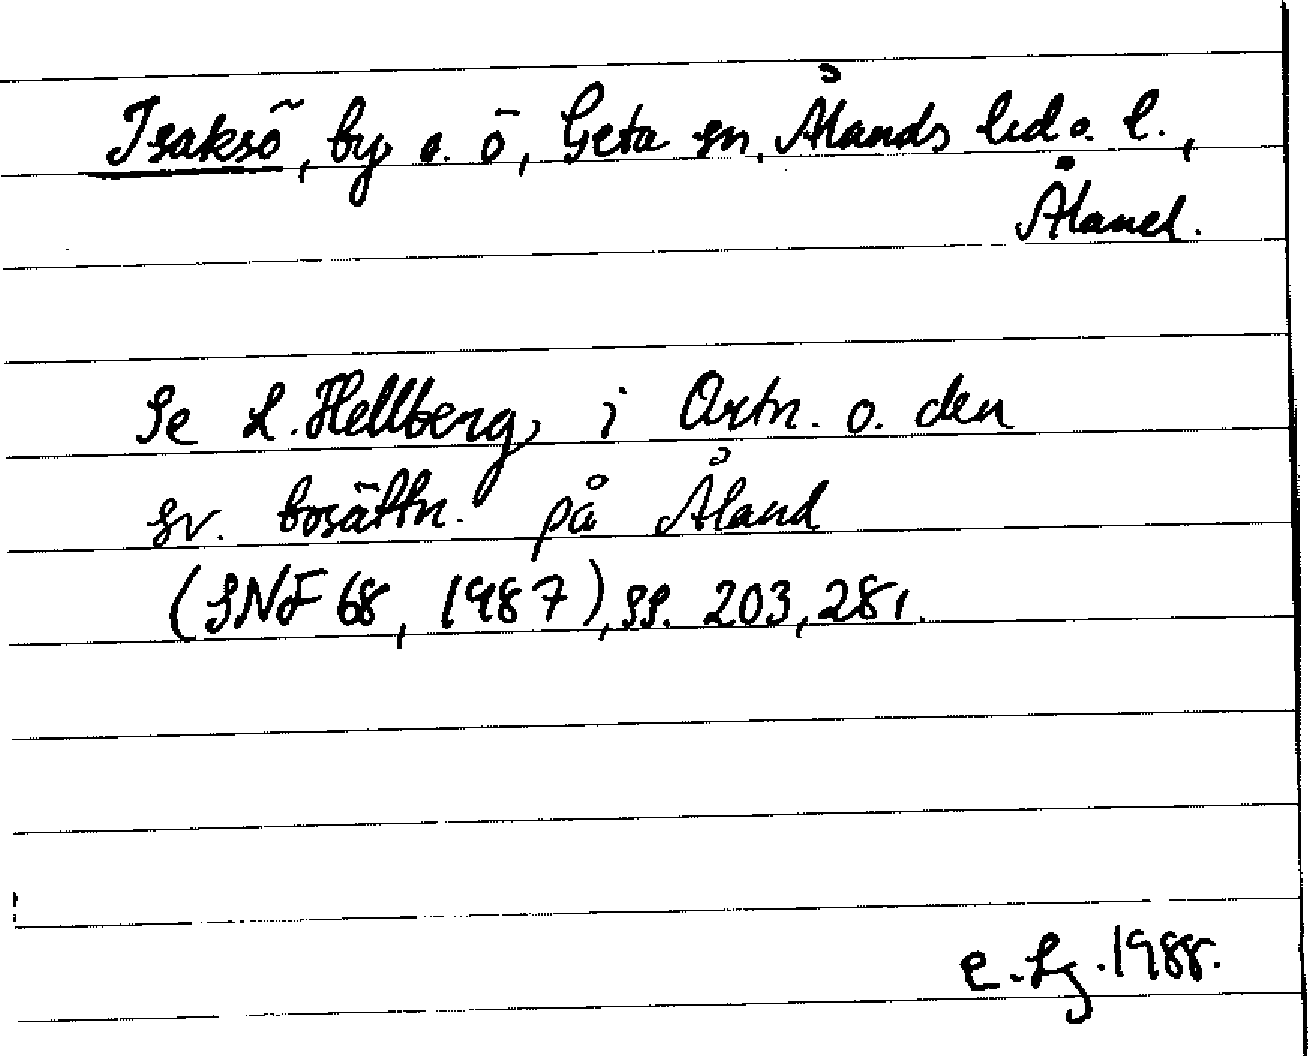 Isaksö, by o. ö, Geta sn, Ålands lcd o. l.,
Åland.
Se L. Hellberg, i Ortn. o. den
sv. bosättn. på Åland
(SNF 68, 1987), ss. 203, 281.
C. Lj. 1988.